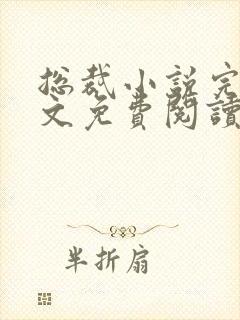 总裁小说完
文免费阅读
半折扇